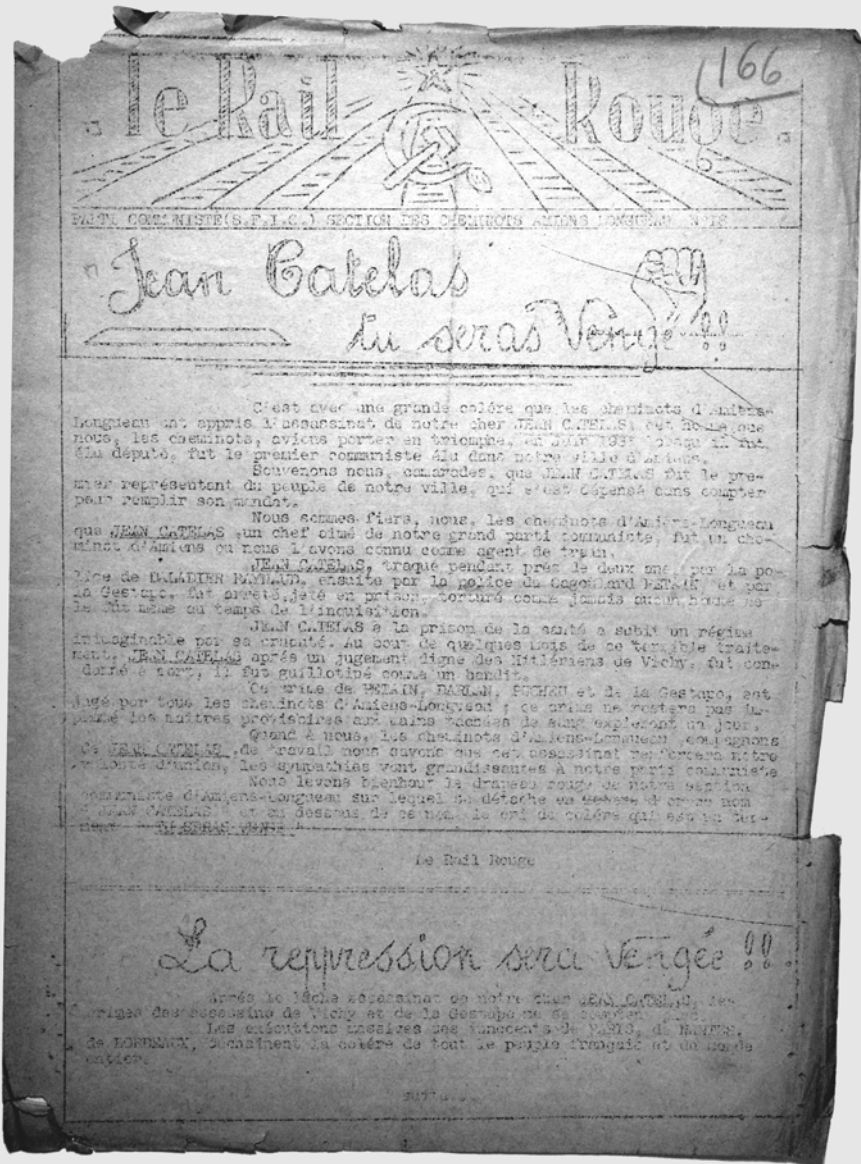 166
le Rail Rouge
PARTI COMMUNISTE(S.F.I.C.) SECTION DES CHEMINOTS AMIENS LONGUEAU N°18
"Jean Catelas
tu seras Vengé !!
C'est avec une grande colére que les cheminots d'Amiens-
Longueau ont appris l'assassinat de notre cher JEAN CATELAS, cet homme que
nous, les cheminots, avions porter en triomphe, en lorsqu'il fut
élu député, fut le premier communiste élu dans notre ville d'Amiens.
Souvenons nous, camarades, que JEAN CATELAS fut le pre-
mier représentant du peuple de notre ville, qui s'est dépensé sans compter
pour remplir son mandat.
Nous sommes fiers, nous, les cheminots d'Amiens-Longueau
que JEAN CATELAS ,un chef aimé de notre grand parti communiste, fut un che-
minot d'Amiens ou nous l'avons connu comme agent de train.
JEAN CATELAS, traqué pendant prés de deux ans, par la po-
lice de DALADIER RAYNAUD, ensuite par la police du Cagoulard PETAIN et par
la Gestapo, fut arreté,jeté en prison, torturé comme jamais aucun homme ne
le fut même au temps de l'inquisition.
JEAN CATELAS a la prison de la santé a subit un régime
inimaginable par sa cruauté. Au cour de quelques mois de ce terrible traite-
ment, JEAN CATELAS aprés un jugement digne des Hitlériens de Vichy, fut con-
damné à mort, il fut guillotiné comme un bandit.
Ce crime de PETAIN, DARLAN, PUCHEU et de la Gestapo, est
jugé par tous les cheminots d'Amiens-Longueau ; ce crime ne restera pas im-
puni les maitres provisoires aux mains tachées de sang expieront un jour.
Quand à nous, les cheminots d'Amiens-Longueau, compagnons
de JEAN CATELAS ,de travail nous savons que cet assassinat renforcera notre
volonté d'union, les sympathies vont grandissantes à notre parti communiste
Nous levons bienhaut le drapeau rouge de notre section
communiste d'Amiens-Longueau sur lequel se détache en nom
JEAN CATELAS et en dessous de ce nom le cri de colére qui est un ser-
ment TU SERAS VENGE
Le Rail Rouge
La reppression sera Vengée !!
Aprés le lâche assassinat de notre cher JEAN CATELAS, les
crimes des assassins de Vichy et de la Gestapo ne se comptent
Les exécutions massives des innocents de PARIS, de NANTES,
de BORDEAUX, déchainent la colére de tout le peuple français et du monde
entier.